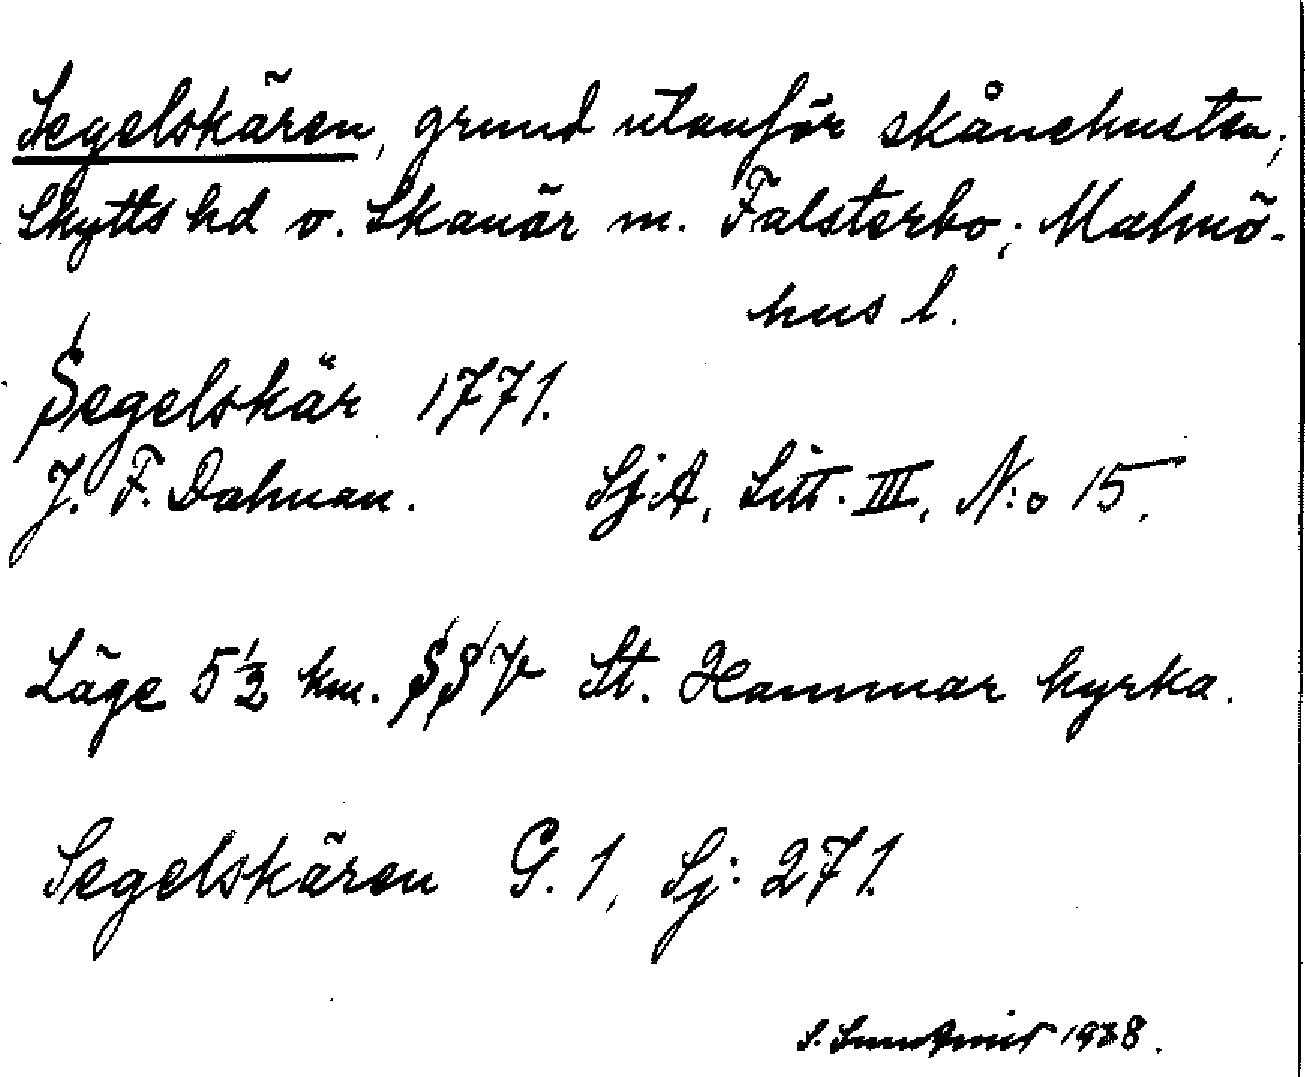 Segelskären, grund utanför skånekusten;
Skytts hd o. Skanör m. Falsterbo; Malmö-
hus l.
Segelskär 1771.
J. F. Dalman. Sj.A, Litt. III, N:o 15.
Läge 5½ km. SSV St. Hammar kyrka.
Segelskären G. 1, Sj: 271.
S. 1938.